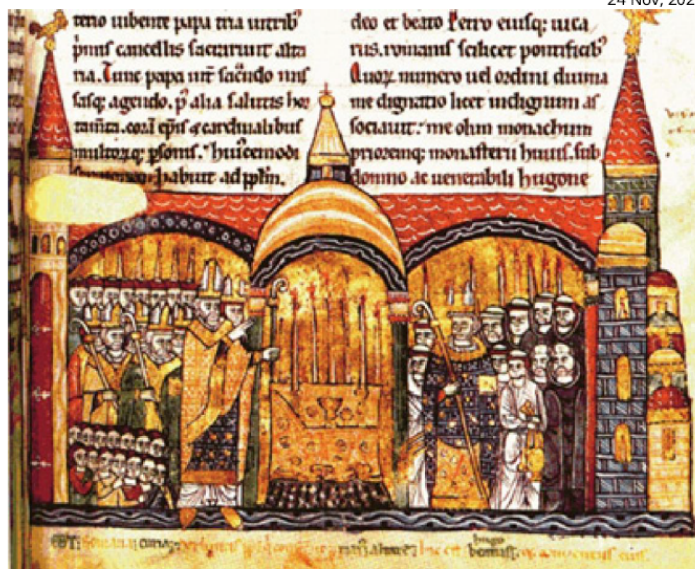 24 Nov, 202
terio iubente papa tria
primis cancellis sacrarunt alta
ria. Tunc papa int̄ sac̄ndo mis
sasq; agendo. p̄ alia salutis hor
corā ep̄is & cardinalibus
multorq; psonis. huiscemodi
habuit ad pplm.
deo et beato Petro eiusq; uica
riis. romanis scilicet pontificib'
Quorꝝ numero uel ordini diuina
me dignatio licet indignum as
sociauit. me olim monachum
prioremq; monasterii huius. sub
domno ac uenerabili hugone
hugo